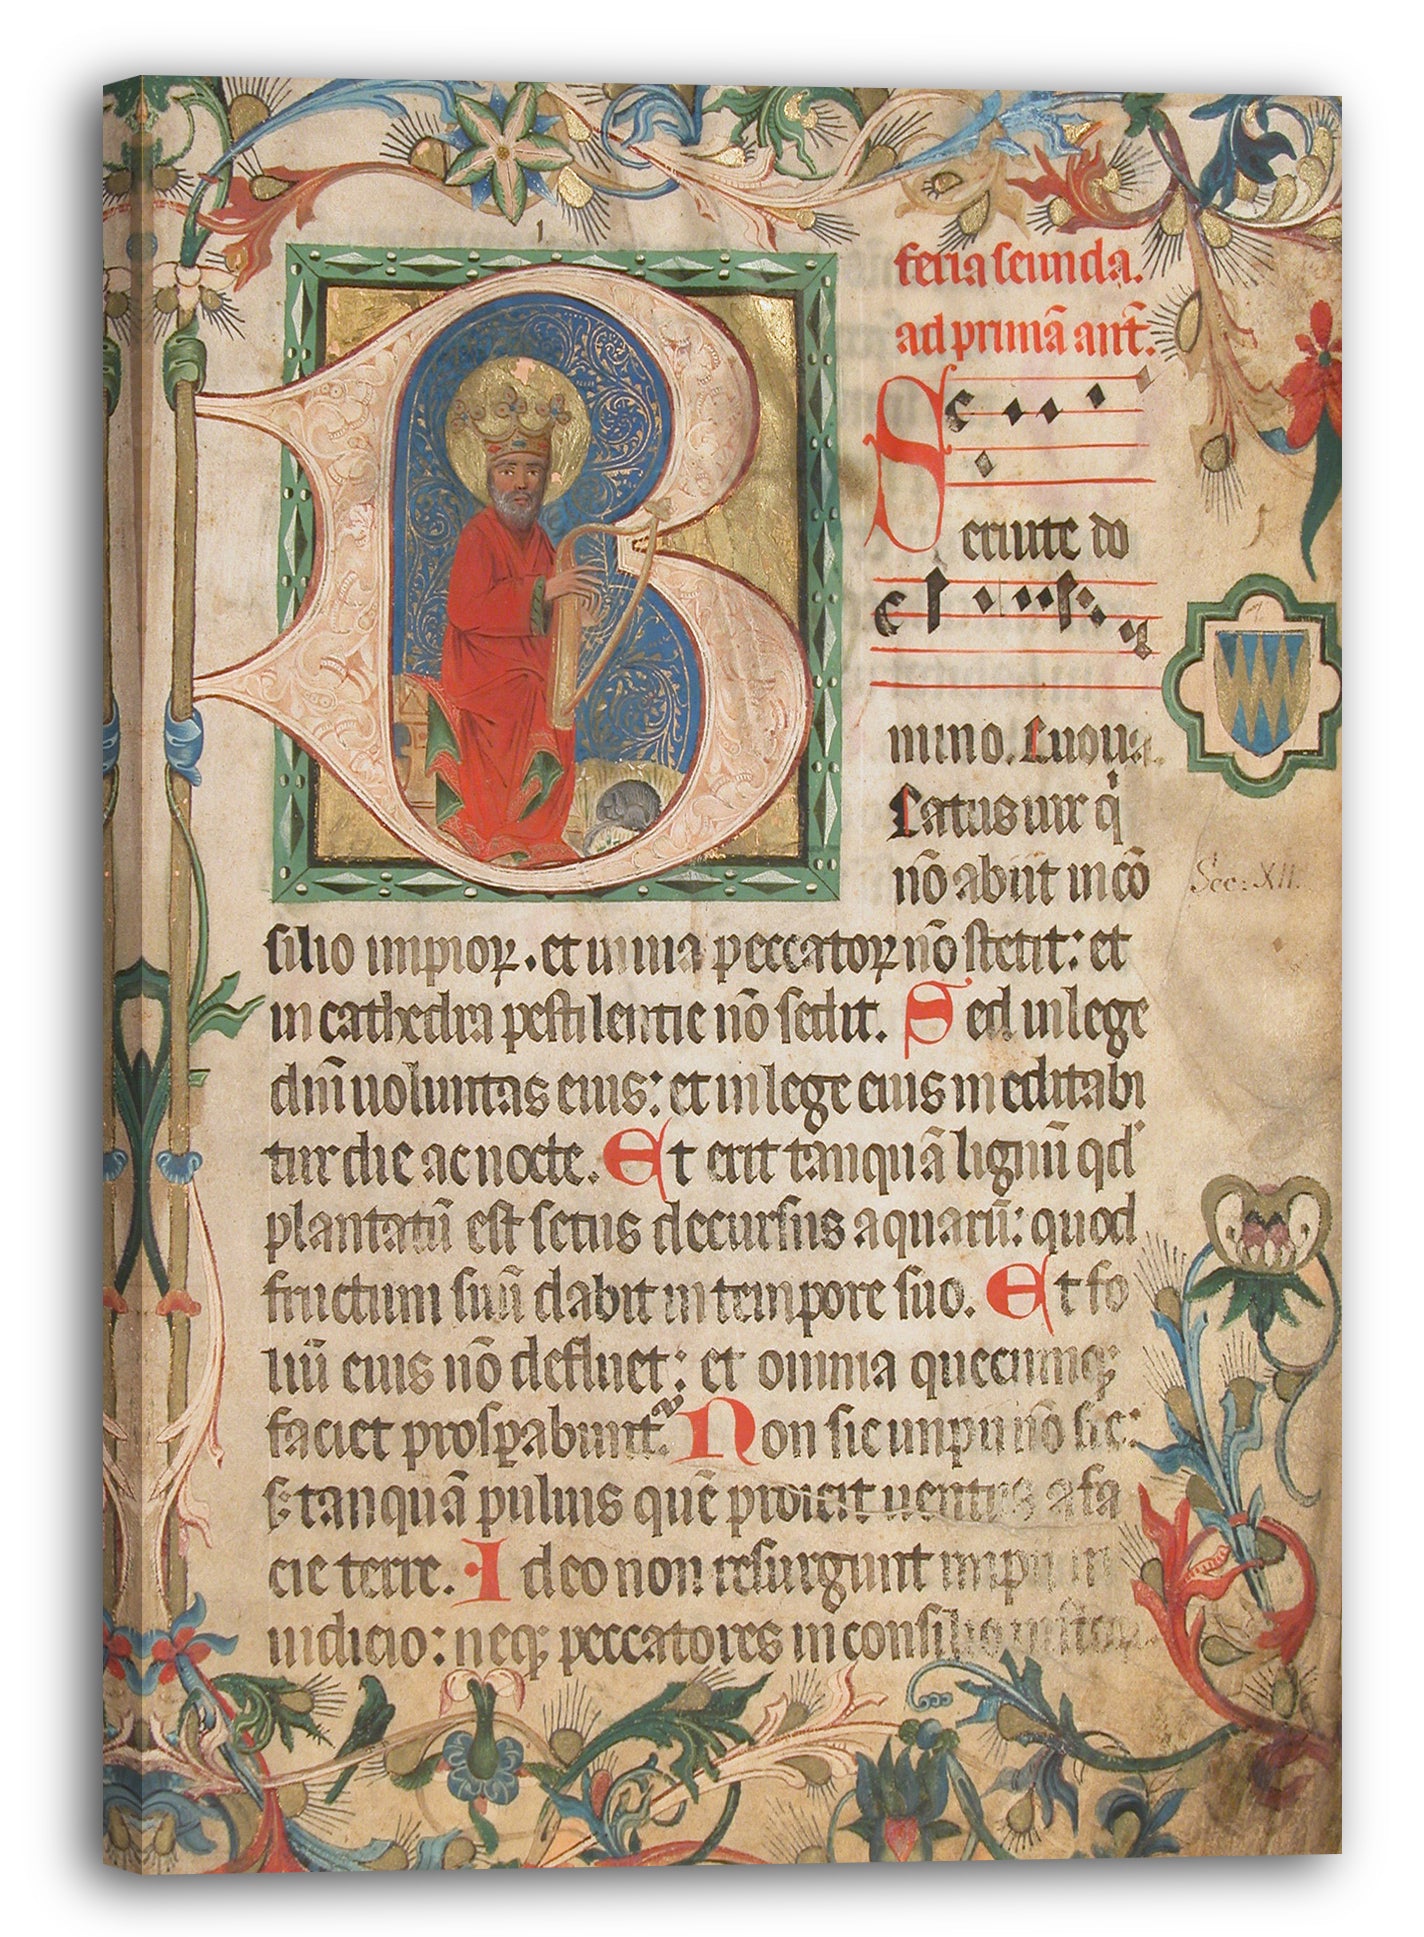 1
feria scunda.
ad primā ant̄.
Seruite do
mino. Euoua.
B
Eatus uir q̇
nō abiit in cō
silio impioꝝ. et in uia peccatoꝝ nō stetit: et
in cathedra pestilentie nō sedit. Sed in lege
dn̄i uoluntas eius: et in lege eius meditabi
tur die ac nocte. Et erit tanquā lignū qd'
plantatū est secus decursus aquarū: quod
fructum suū dabit in tempore suo. Et fo
liū eius nō defluet: et omnia quecumqꝫ
faciet prosꝑabunt᷑. Non sic impii nō sic:
sꝫ tanquā puluis quē proicit uentus a fa
cie terre. Ideo non resurgunt impii in
iudicio: neqꝫ peccatores in consilio iustoꝝ
Sec: XII.